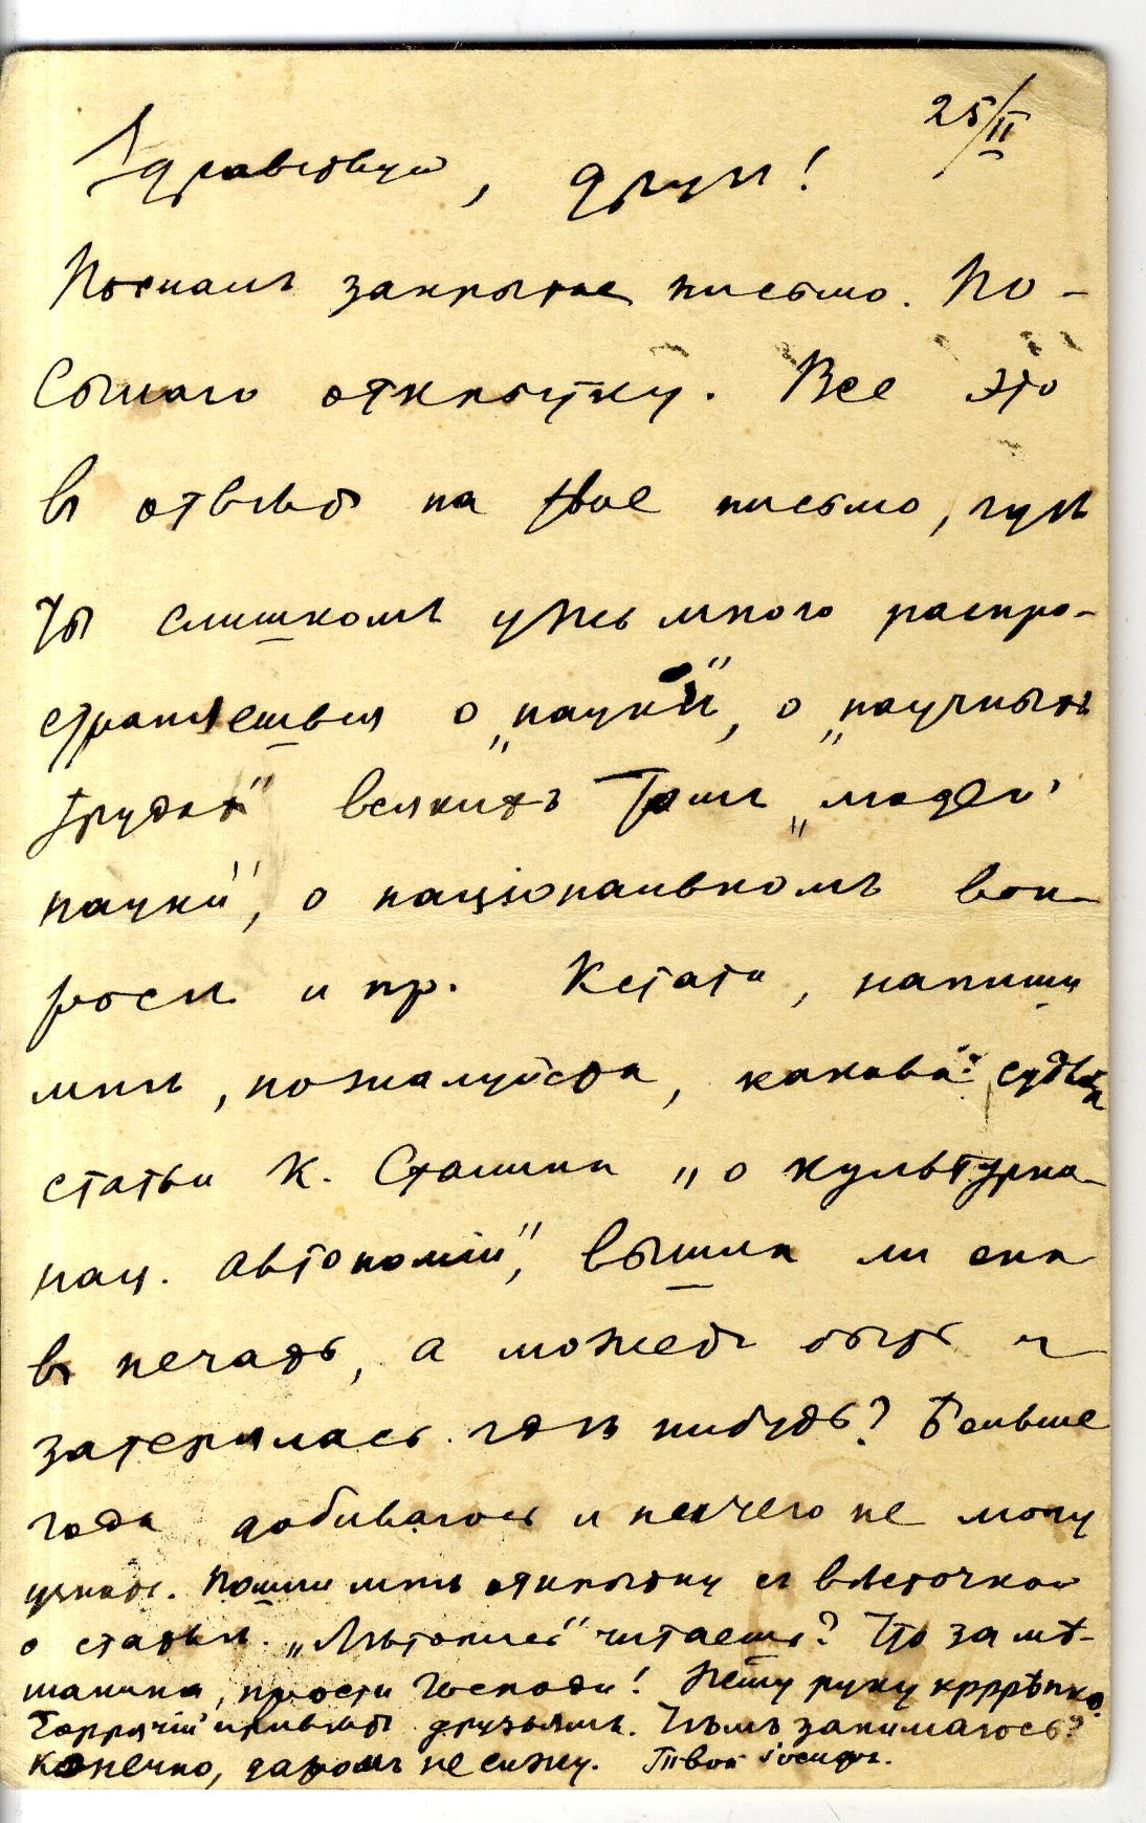 25/II
Здравствуй, друг!
Послалъ закрытое письмо. По-
сылаю открытку. Все это
въ отвѣтъ на твое письмо, гдѣ
ты слишкомъ ужъ много распро-
страняешься о „наукѣ“, о „научныхъ
трудахъ“ всякихъ „людей
науки“, о націонаьльномъ воп-
росѣ и пр. Кстати, напиши
мнѣ, пожалуйста, какова судьба
статьи К. Сталина „о культурно-
нац. автономіи“, вышла ли она
въ печать, а можетъ быть и
затерялась гдѣ нибудь? Больше
года добиваюсь и ничего не могу
узнать. Пошли мнѣ открытку съ вѣсточкой
о статьѣ. „Лѣтопись“ читаешь? Что за мѣ-
шанина, прости Господи! Жму руку кррѣпко.
Горрячій привѣтъ друзьямъ. Чѣмъ занимаюсь?
Конечно, даромъ не сижу. Твой Іосифъ.